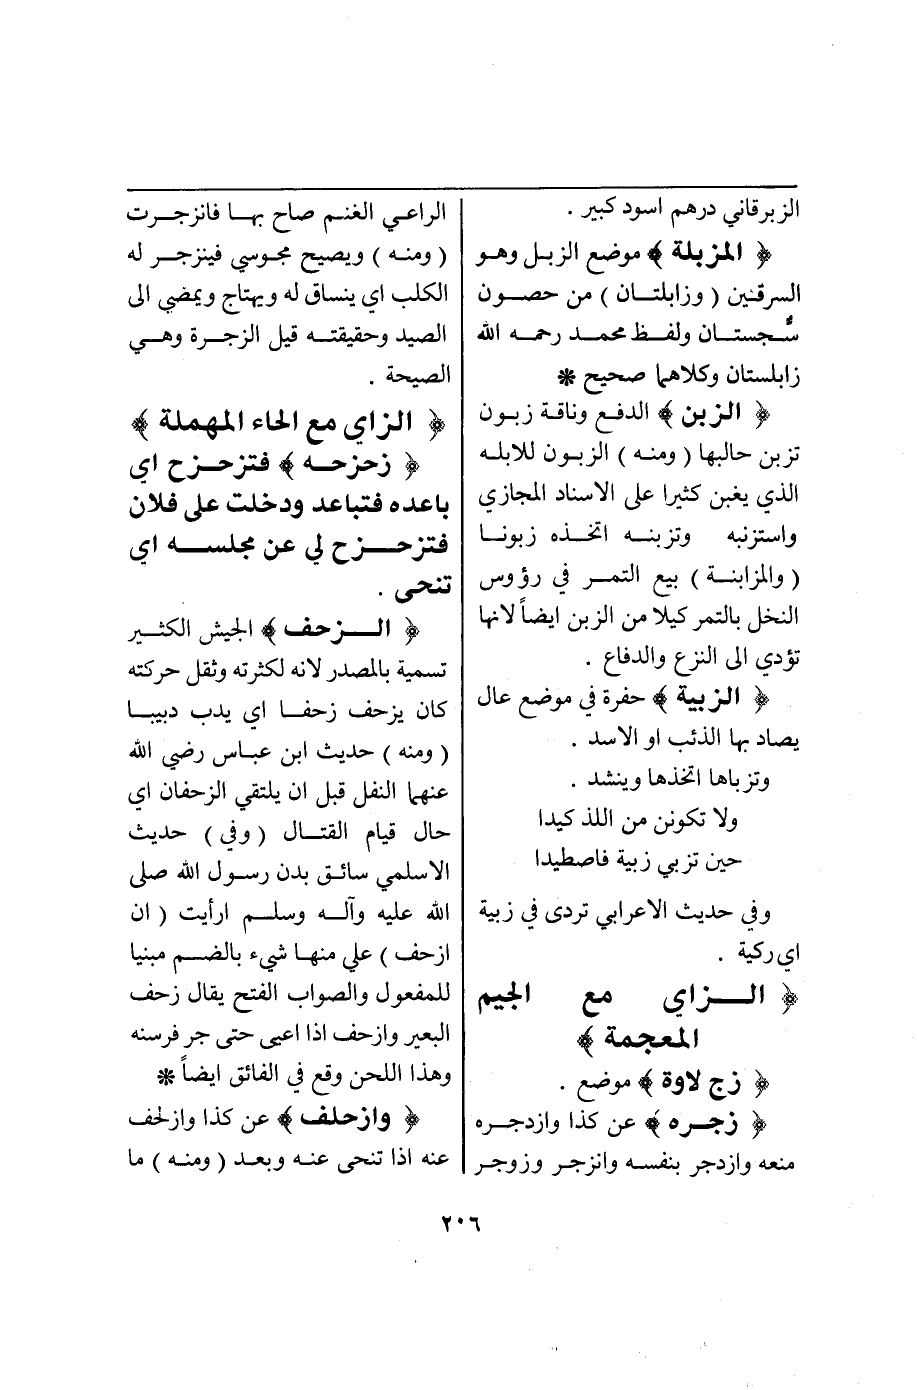 الزبرقاني درهم اسود كبير .
﴿ المزبلة ﴾ موضع الزبـل وهـو
السرقين ( وزابلتـــان ) من حصـــون
سُجستـــان ولفــظ محمـــد رحمـــه الله
زابلستان وكلاهما صحيح *
﴿ الزبن ﴾ الدفع وناقـة زبـون
تزبن حالبها ( ومنه ) الزبـون للابله
الذي يغبن كثيرا على الاسناد المجازي
واستزنبه وتزبنـــه اتخـــذه زبونـــا
( والمزابنـــة ) بيع التمـــر في رؤوس
النخل بالتمر كيلا من الزبن ايضاً لانها
تؤدي الى النزع والدفاع .
﴿ الزبية ﴾ حفرة في موضع عال
يصاد بها الذئب او الاسد .
وتزباها اتخذها وينشد .
ولا تكونن من اللذ كيدا
حين تزبي زبية فاصطيدا
وفي حديث الاعرابي تردى في زبية
اي ركية .
﴿ الـــزاي مع الجيم
المعجمة ﴾
﴿ زج لاوة ﴾ موضع .
﴿ زجـــره ﴾ عن كذا وازدجـــره
منعه وازدجر بنفســـه وانزجـــر وزوجـــر
الراعـــي الغنـــم صاح بهـــا فانزجـــرت
( ومنـــه ) ويصيح مجوسي فينزجـــر له
الكلب اي ينساق له ويهتاج ويمضي الى
الصيد وحقيقتـــه قيل الزجـــرة وهـــي
الصيحة .
﴿ الزاي مع الحاء المهملة ﴾
﴿ زحزحـــه ﴾ فتزحـــزح اي
باعده فتباعد ودخلت على فلان
فتزحـــزح لي عن مجلســـه اي
تنحى .
﴿ الـــزحف ﴾ الجيش الكثـــير
تسمية بالمصدر لانه لكثرته وثقل حركته
كان يزحف زحفـــا اي يدب دبيبـــا
( ومنه ) حديث ابن عبـــاس رضي الله
عنهما النفل قبل ان يلتقي الزحفان اي
حال قيام القتـــال ( وفي ) حديث
الاسلمي سائـــق بدن رســـول الله صلى
الله عليه وآلـــه وسلـــم ارأيت ( ان
ازحف ) علي منهـــا شيء بالضـــم مبنيا
للمفعول والصواب الفتح يقال زحف
البعير وازحف اذا اعيى حتى جر فرسنه
وهذا اللحن وقع في الفائق ايضاً *
﴿ وازحلف ﴾ عن كذا وازلحف
عنه اذا تنحى عنـــه وبعـــد ( ومنـــه ) ما
٢٠٦